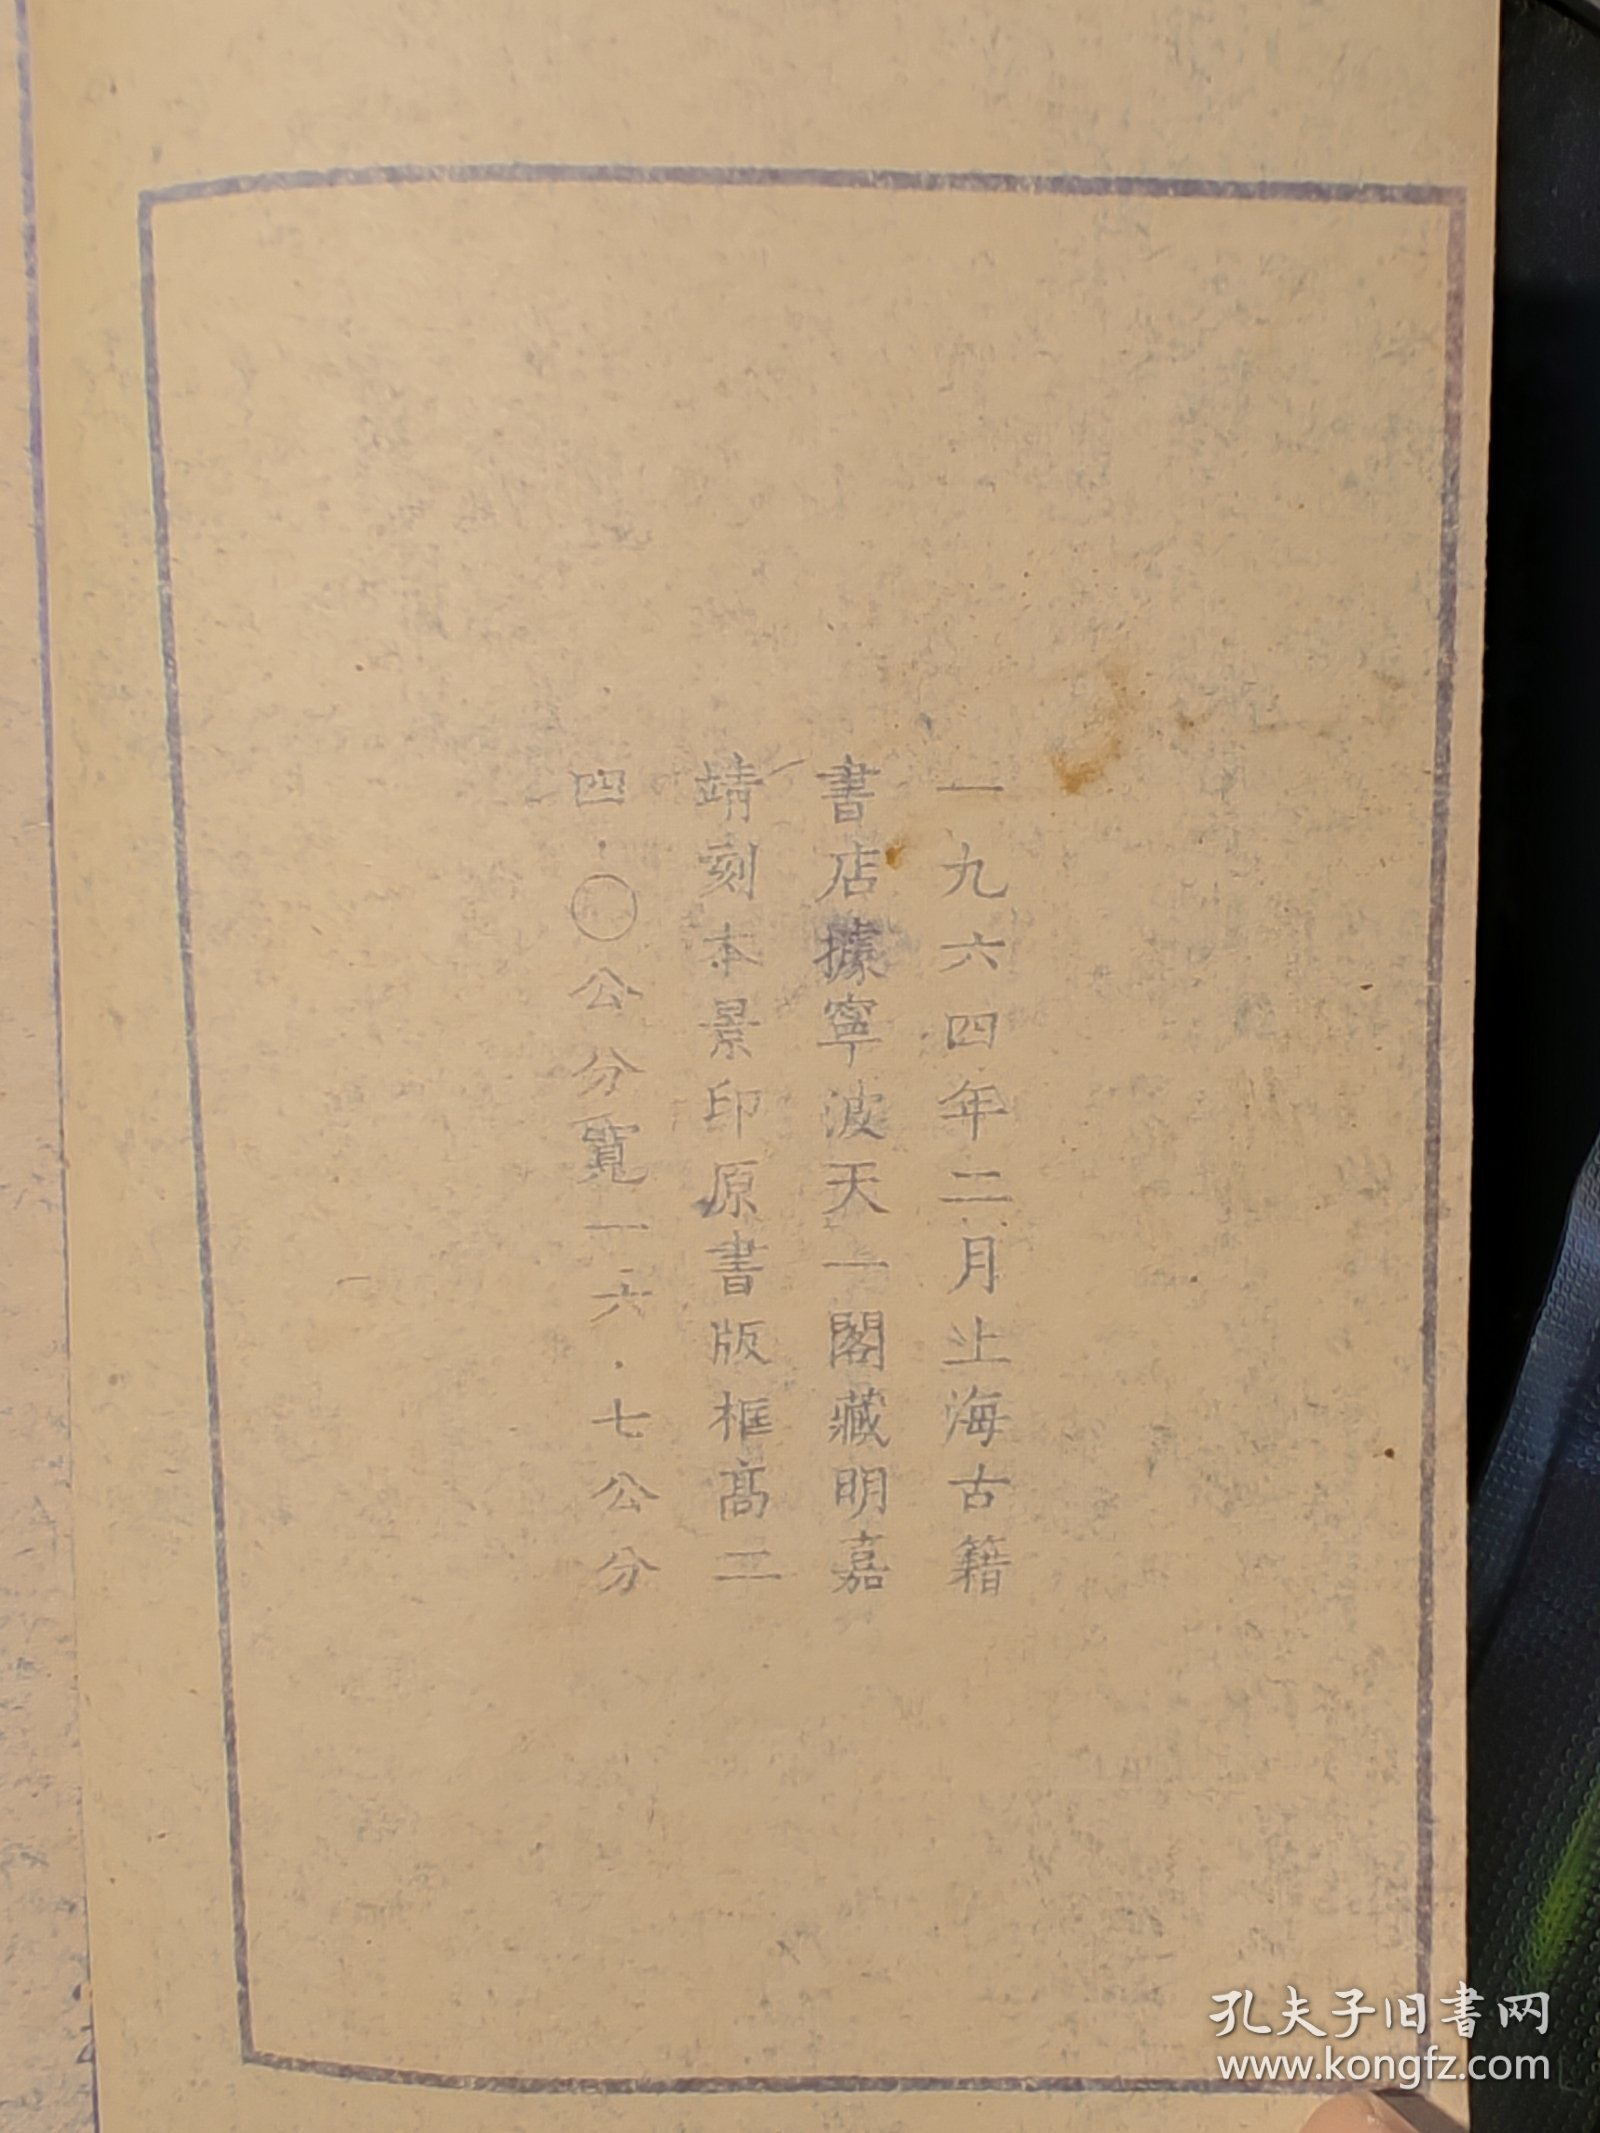 一九六四年二月上海古籍
書店據寧波天一閣藏明嘉
靖刻本景印原書版框高二
四·〇公分寬一六·七公分
孔夫子旧書网
www.kongfz.com